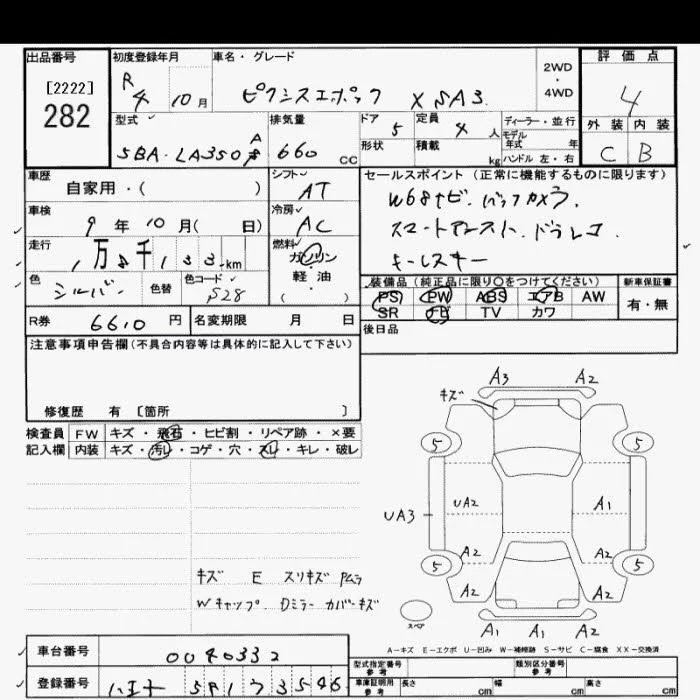 出品番号 初度登録年月 車名・グレード 2WD・4WD 評価点
[2222] R4 10月 ピクシスエポック X SA3. 4
282
型式 排気量 ドア 5 定員 4人 ディーラー・並行 外装 内装
5BA-LA350 660 CC 形状 積載 kg モデル年式 年 C B
ハンドル 左・右
車歴 シフト セールスポイント (正常に機能するものに限ります)
自家用・( ) AT
車検 冷房 W68ナビ. バックカメラ.
9年10月( 日) AC スマートアシスト. ドラレコ
走行 燃料 キーレスキー
1万8千133km ガソリン
色 シルバー 色替 色コード S28 軽・油 ( )
装備品 (純正品に限り〇をつけてください) 新車保証書
PS PW ABS エアB AW 有・無
SR ナビ TV カワ
R券 6610円 名変期限 月 日 後日品
注意事項申告欄(不具合内容等は具体的に記入して下さい)
修復歴 有 [箇所 ]
検査員 FW キズ・飛石・ヒビ割・リペア跡・×要
記入欄 内装 キズ・汚れ・コゲ・穴・スレ・キレ・破レ
A3 A2
キズ
5 5
UA3 UA2 A1
A2 A2
5 5
A2 A2
A1 A1 A2
スペア
キズ E スリキズ
Wキャップ. Dミラーカバーキズ
A-キズ E-エクボ U-凹み W-補修跡 S-サビ C-腐食 XX-交換済
車台番号 0040332
登録番号
型式指定番号 参考 類別区分番号 参考
車庫証明用 参考 長さ cm 幅 cm 高さ cm